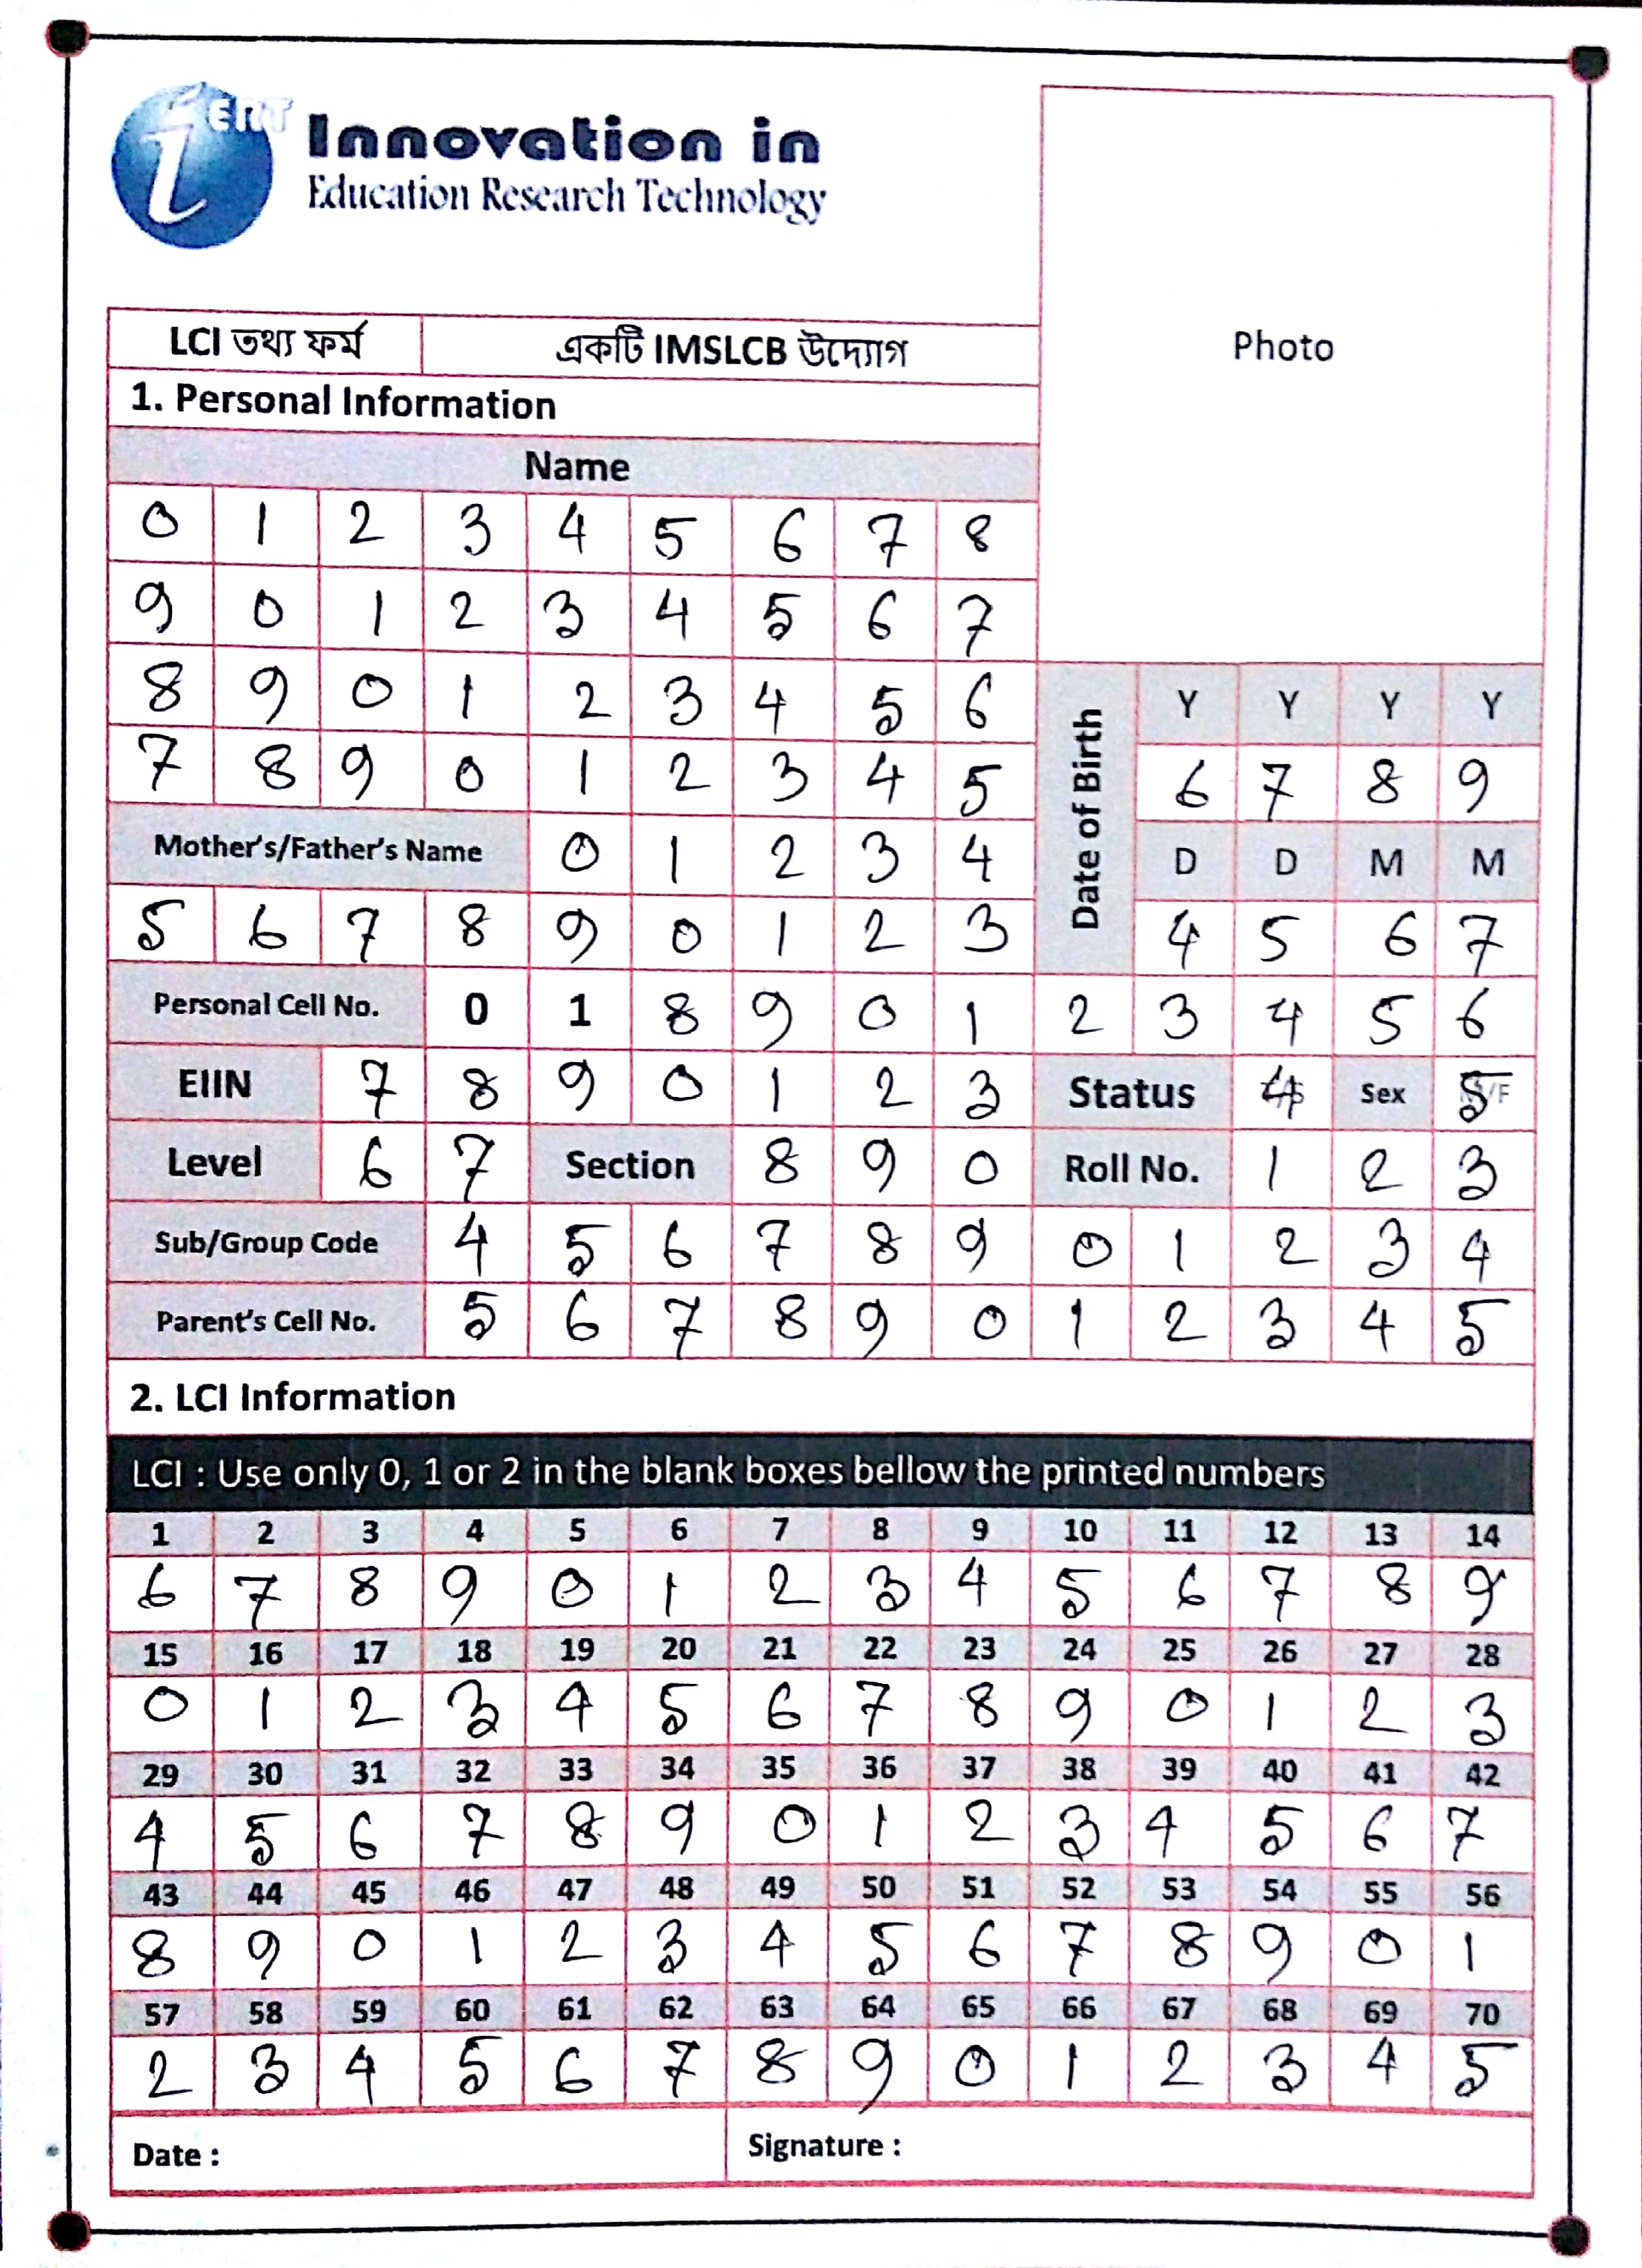 iERT
Innovation in
Education Research Technology
Photo
LCI তথ্য ফর্ম একটি IMSLCB উদ্যোগ
1. Personal Information
Name
0 1 2 3 4 5 6 7 8
9 0 1 2 3 4 5 6 7
8 9 0 1 2 3 4 5 6
7 8 9 0 1 2 3 4 5
Date of Birth
Y Y Y Y
6 7 8 9
D D M M
4 5 6 7
Mother's/Father's Name 0 1 2 3 4
5 6 7 8 9 0 1 2 3
Personal Cell No. 0 1 8 9 0 1 2 3 4 5 6
EIIN 7 8 9 0 1 2 3 Status 4 Sex 5 /F
Level 6 7 Section 8 9 0 Roll No. 1 2 3
Sub/Group Code 4 5 6 7 8 9 0 1 2 3 4
Parent's Cell No. 5 6 7 8 9 0 1 2 3 4 5
2. LCI Information
LCI : Use only 0, 1 or 2 in the blank boxes bellow the printed numbers
1 2 3 4 5 6 7 8 9 10 11 12 13 14
6 7 8 9 0 1 2 3 4 5 6 7 8 9
15 16 17 18 19 20 21 22 23 24 25 26 27 28
0 1 2 3 4 5 6 7 8 9 0 1 2 3
29 30 31 32 33 34 35 36 37 38 39 40 41 42
4 5 6 7 8 9 0 1 2 3 4 5 6 7
43 44 45 46 47 48 49 50 51 52 53 54 55 56
8 9 0 1 2 3 4 5 6 7 8 9 0 1
57 58 59 60 61 62 63 64 65 66 67 68 69 70
2 3 4 5 6 7 8 9 0 1 2 3 4 5
Date : Signature :